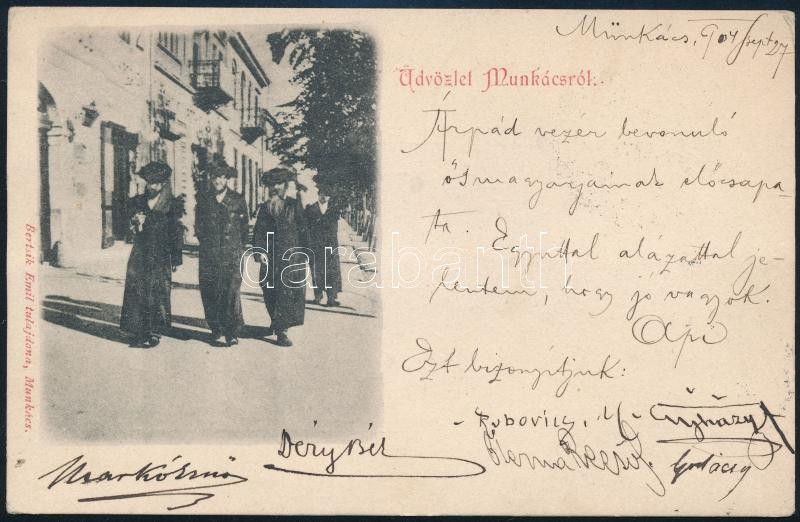 Munkács, 904 Szept 27
Üdvözlet Munkácsról.
Árpád vezér bevonuló
ősmagyarjainak előcsapa-
ta. Egyuttal alázattal je-
lentem, hogy jó vagyok.
Api
Ezt bizonyitjuk:
Újházy
Déry Bél
Markó Ernő
Bertsik Emil tulajdona, Munkács.
darabanth